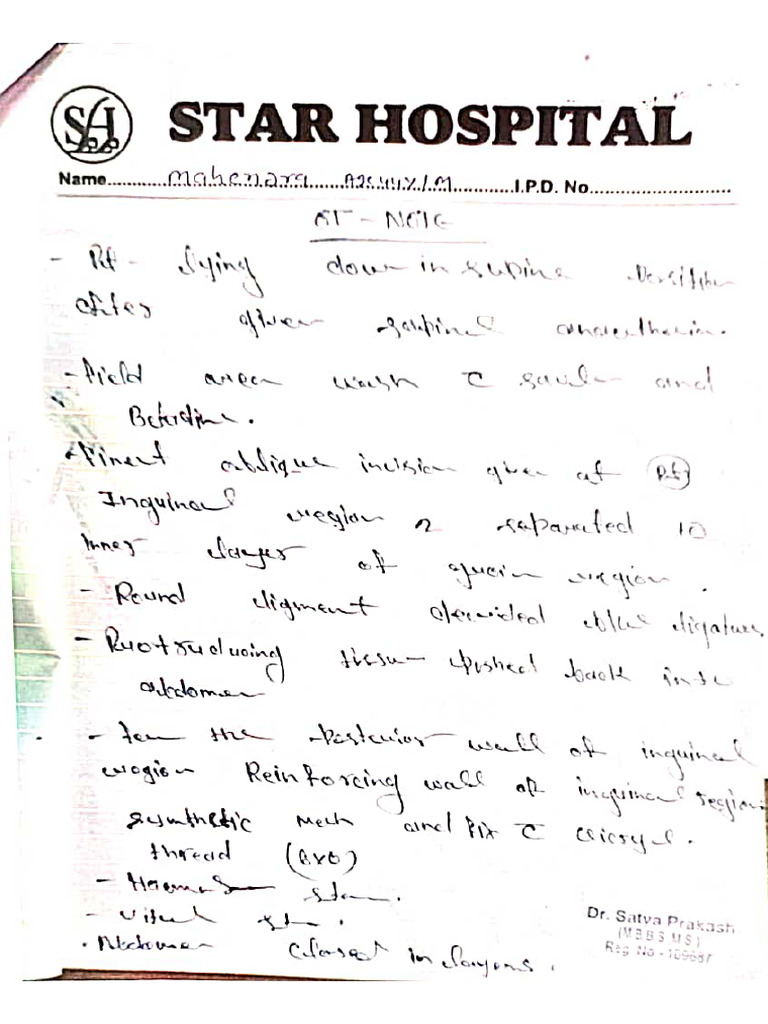 SH STAR HOSPITAL
Name............Mahendra.......A2C44Y/M............I.P.D. No...........................
OT - NOTE
- Pt - lying down in supine position
after given saupinal anaesthesia.
- Field area wash c savlon and
Betadine.
- Finest oblique incision given at Rt
Inguinal region 2 separated to
Inner layer of groin region.
- Round ligment devided b/w ligature.
- Protruduoing tissue Pushed back into
abdomen
- for the Posterior wall of inguinal
region Reinforcing wall of inguinal region
synthetic mesh and fix c
thread
- Haemo
- Vital
- Abdomen closed in layers.
Dr. Satya Prakash
(MBBS MS)
Reg No -109687